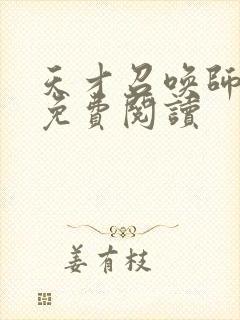 天才召喚師
免費閱讀
姜有枝